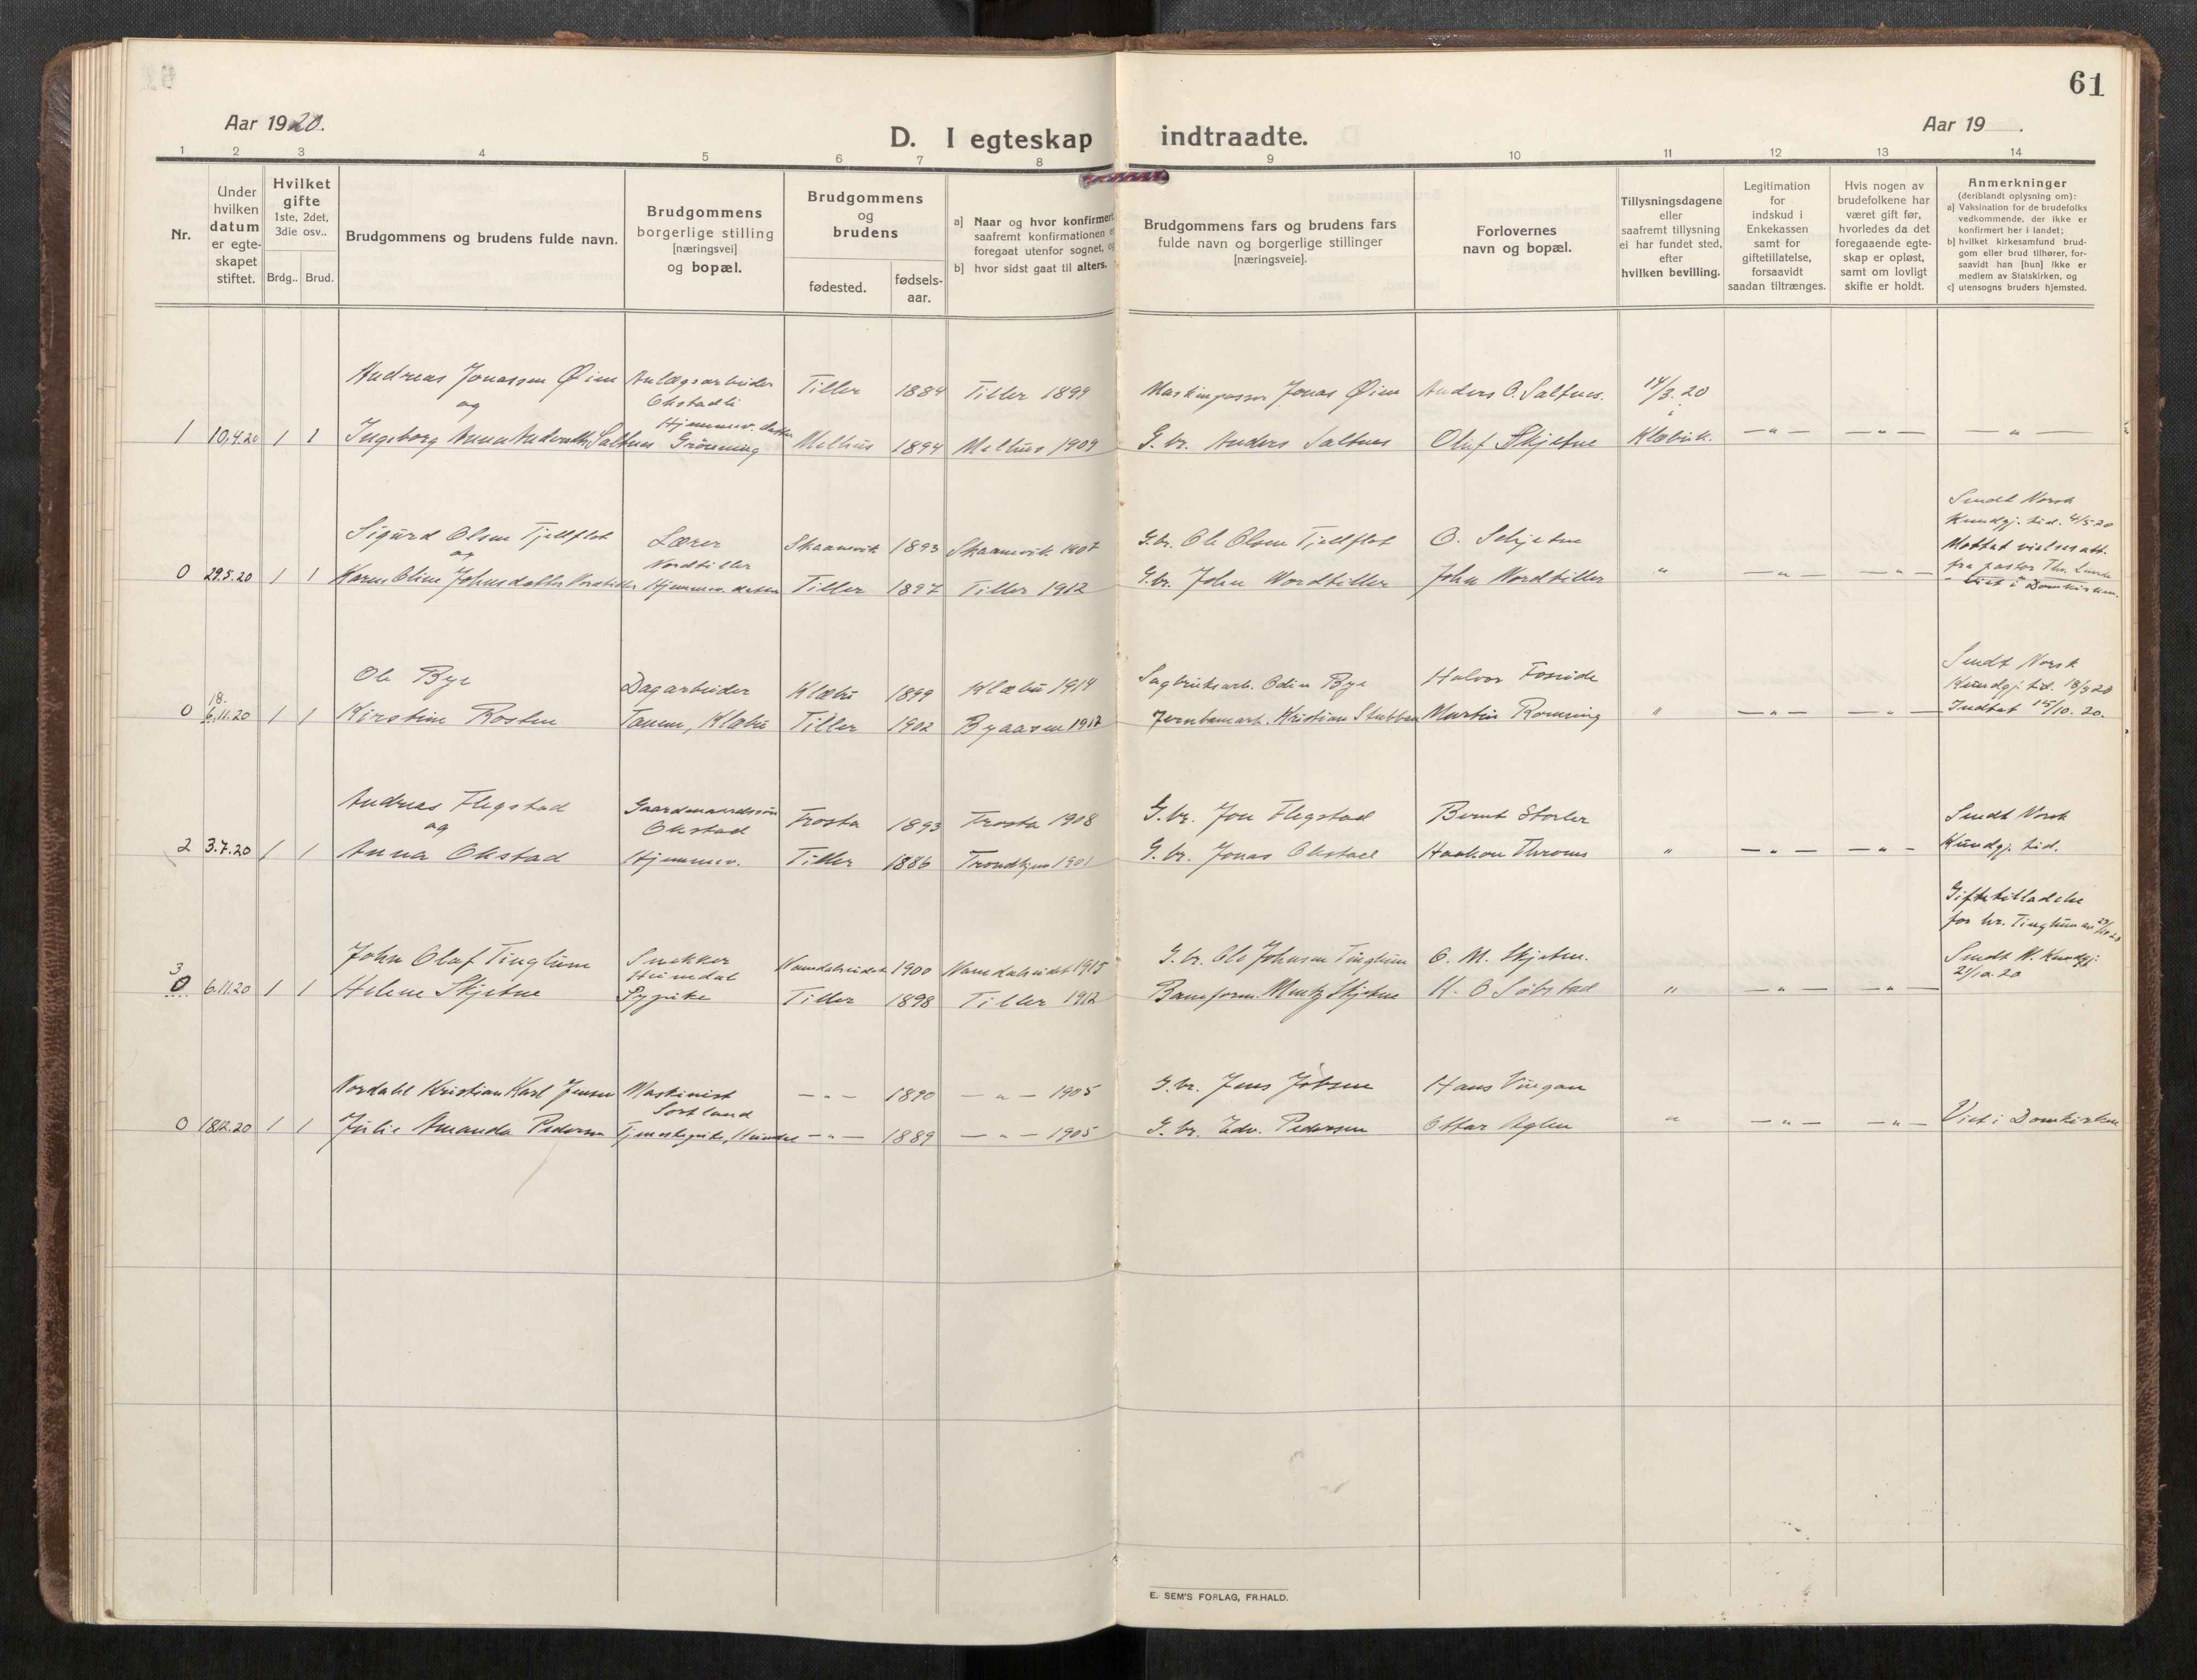 61
Aar 1920.
D. I egteskap indtraadte.
Aar 19 .
1 2 3 4 5 6 7 8 9 10 11 12 13 14
Nr.
Under
hvilken
datum
er egte-
skapet
stiftet.
Hvilket
gifte
1ste, 2det,
3die osv..
Brdg.. Brud.
Brudgommens og brudens fulde navn.
Brudgommens
borgerlige stilling
[næringsvei]
og bopæl.
Brudgommens
og
brudens
fødested.
fødsels-
aar.
a] Naar og hvor konfirmert
saafremt konfirmationen
foregaat utenfor sognet,
b] hvor sidst gaat til alters.
Brudgommens fars og brudens fars
fulde navn og borgerlige stillinger
[næringsveie].
Forlovernes
navn og bopæl.
Tillysningsdagene
eller
saafremt tillysning
ei har fundet sted,
efter
hvilken bevilling.
Legitimation
for
indskud i
Enkekassen
samt for
giftetillatelse,
forsaavidt
saadan tiltrænges.
Hvis nogen av
brudefolkene har
været gift før,
hvorledes da det
foregaaende egte-
skap er opløst,
samt om lovligt
skifte er holdt.
Anmerkninger
(deriblandt oplysning om):
a] Vaksination for de brudefolks
vedkommende, der ikke er
konfirmert her i landet;
b] hvilket kirkesamfund brud-
gom eller brud tilhører, for-
saavidt han [hun] ikke er
medlem av Statskirken, og
c] utensogns bruders hjemsted.
Andreas Jonassen Øien Anlægsarbeider Tiller 1884 Tiller 1899 Jonas Øien Anders O. Saltnes. 14/3.20
og Okstadli i
Hjemmev. datter
1 10.4.20 1 1 Ingeborg Anna Saltnes Grönning Melhus 1894 Melhus 1909 G.br. Anders Saltnes Oluf Skjetne Klæbu k. — " — — " — — " —
Sendt Norsk
Kundgj. tid. 4/5 20
Sigurd Olsen Tjelflot Lærer Skaanevik 1893 Skaanevik 1907 G.br. Ole Olsen Tjelflot O. Skjetne Mottat vielsesatt.
og Nordtiller fra pastor Thv.
0 29.5.20 1 1 Karen Oline Johnsdatter Nordtiller Hjemmev. datter Tiller 1897 Tiller 1912 G.br. John Nordtiller John Nordtiller " — " — — " — Viet i Domkirken.
Sendt Norsk
Ole Bye Dagarbeider Klæbu 1899 Klæbu 1914 Sagbruksarb. Odin Bye Halvor Kundgj. tid. 18/9 20
18.
0 6.11.20 1 1 Kirstine Rosten Tanem, Klæbu Tiller 1902 Byaasen 1917 Jernbanearb. Kristian Stubban Martin " — " — — " — 15/10. 20.
Andreas Flegstad Gaardmandssøn Frosta 1893 Frosta 1908 G.br. Jon Flegstad Bernt Storler Sendt Norsk
og Okstad
2 3.7.20 1 1 Anna Okstad Hjemmev. Tiller 1886 Trondhjem 1901 G.br. Jonas Okstad Haakon Throns " — " — — " — Kundgj. tid.
Giftetilladelse
for br. Tinglum av
John Olaf Tinglum Snekker Namdalseidet 1900 Namdalseidet 1915 G.br. Ole Johnsen Tinglum O. M. Skjetne. Sendt N. Kundgj.
3 Heimdal 21/10.20
0 6.11.20 1 1 Helene Skjetne Sypike Tiller 1898 Tiller 1912 Baneform. Mentz Skjetne K. O Söbstad " — " — — " —
Nordahl Kristian Karl Jensen Maskinist — " — 1890 — " — 1905 G.br. Jens Jobsen Hans Viggan
Sortland
0 18.12.20 1 1 Julie Amanda Pedersen Tjenestepike, Heimdal — " — 1889 — " — 1905 G.br. Edv. Pedersen Ottar Aglen " — " — — " — Viet i Domkirken
E. SEM'S FORLAG, FR.HALD.